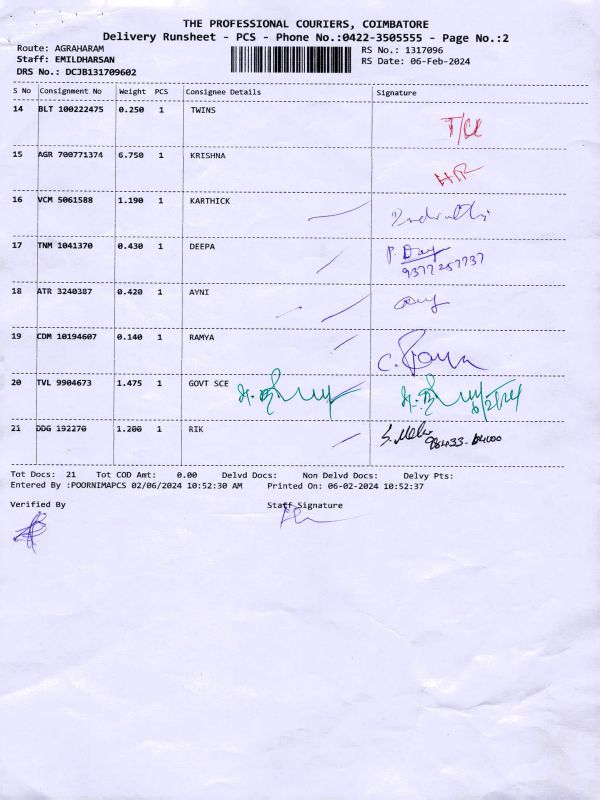 THE PROFESSIONAL COURIERS, COIMBATORE
Delivery Runsheet - PCS - Phone No.:0422-3505555 - Page No.:2
Route: AGRAHARAM RS No.: 1317096
Staff: EMILDHARSAN RS Date: 06-Feb-2024
DRS No.: DCJB131709602
S No Consignment No Weight PCS Consignee Details Signature
14 BLT 100222475 0.250 1 TWINS
15 AGR 700771374 6.750 1 KRISHNA
16 VCM 5061588 1.190 1 KARTHICK
17 TNM 1041370 0.430 1 DEEPA
9377257737
18 ATR 3240387 0.420 1 AYNI
19 CDM 10194607 0.140 1 RAMYA
20 TVL 9904673 1.475 1 GOVT SCE
21 DDG 192270 1.200 1 RIK
Tot Docs: 21 Tot COD Amt: 0.00 Delvd Docs: Non Delvd Docs: Delvy Pts:
Entered By :POORNIMAPCS 02/06/2024 10:52:30 AM Printed On: 06-02-2024 10:52:37
Verified By Staff Signature